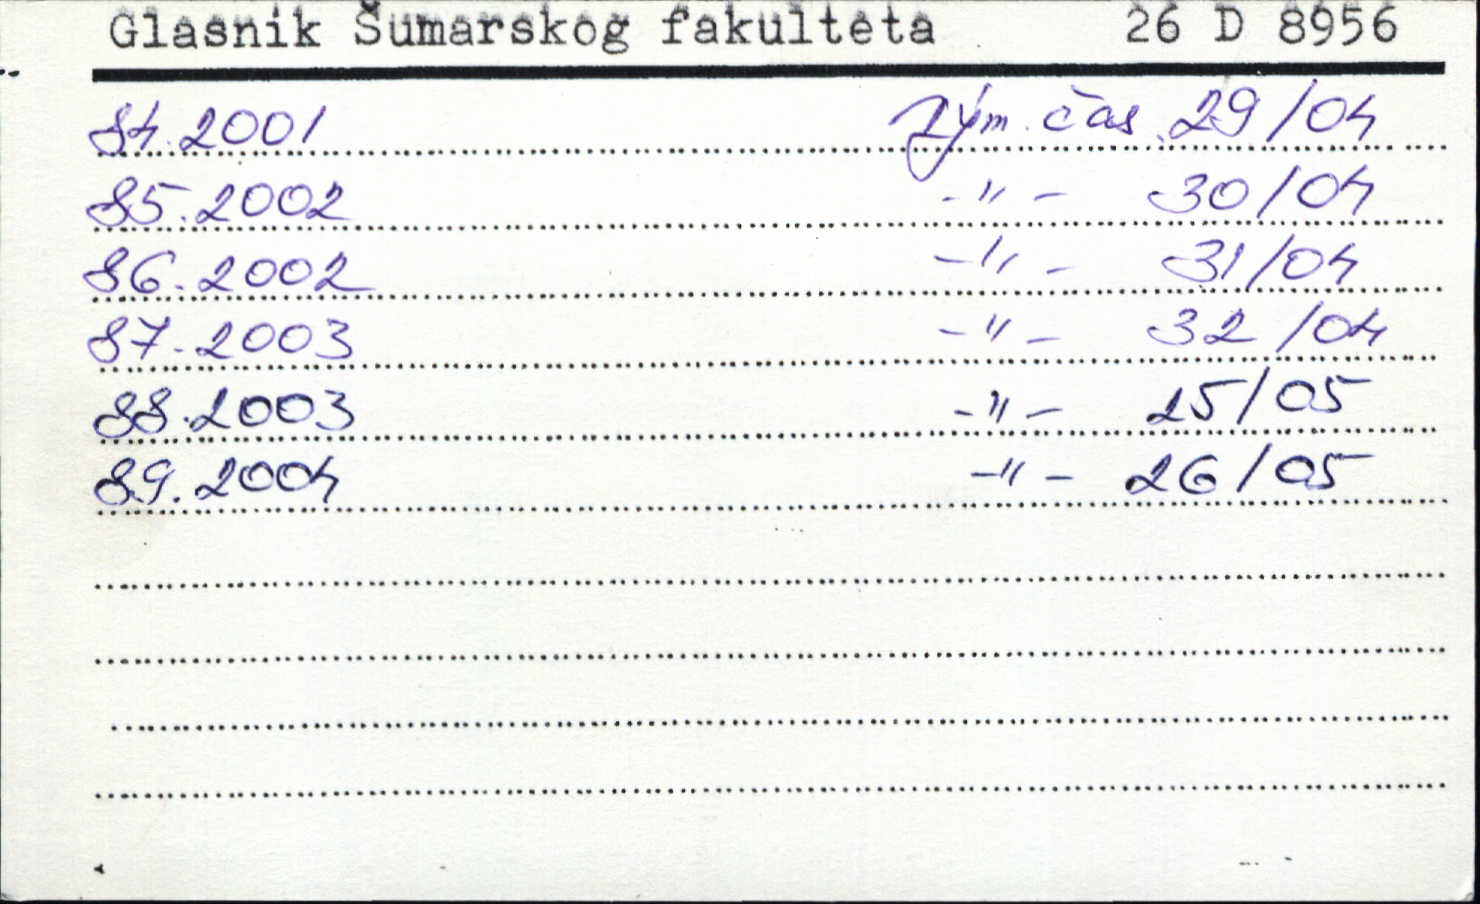 Glasnik Šumarskog fakulteta 26 D 8956
84.2001 vým. čas. 29/04
85.2002 -"- 30/04
86.2002 -"- 31/04
87.2003 -"- 32/04
88.2003 -"- 25/05
89.2004 -"- 26/05